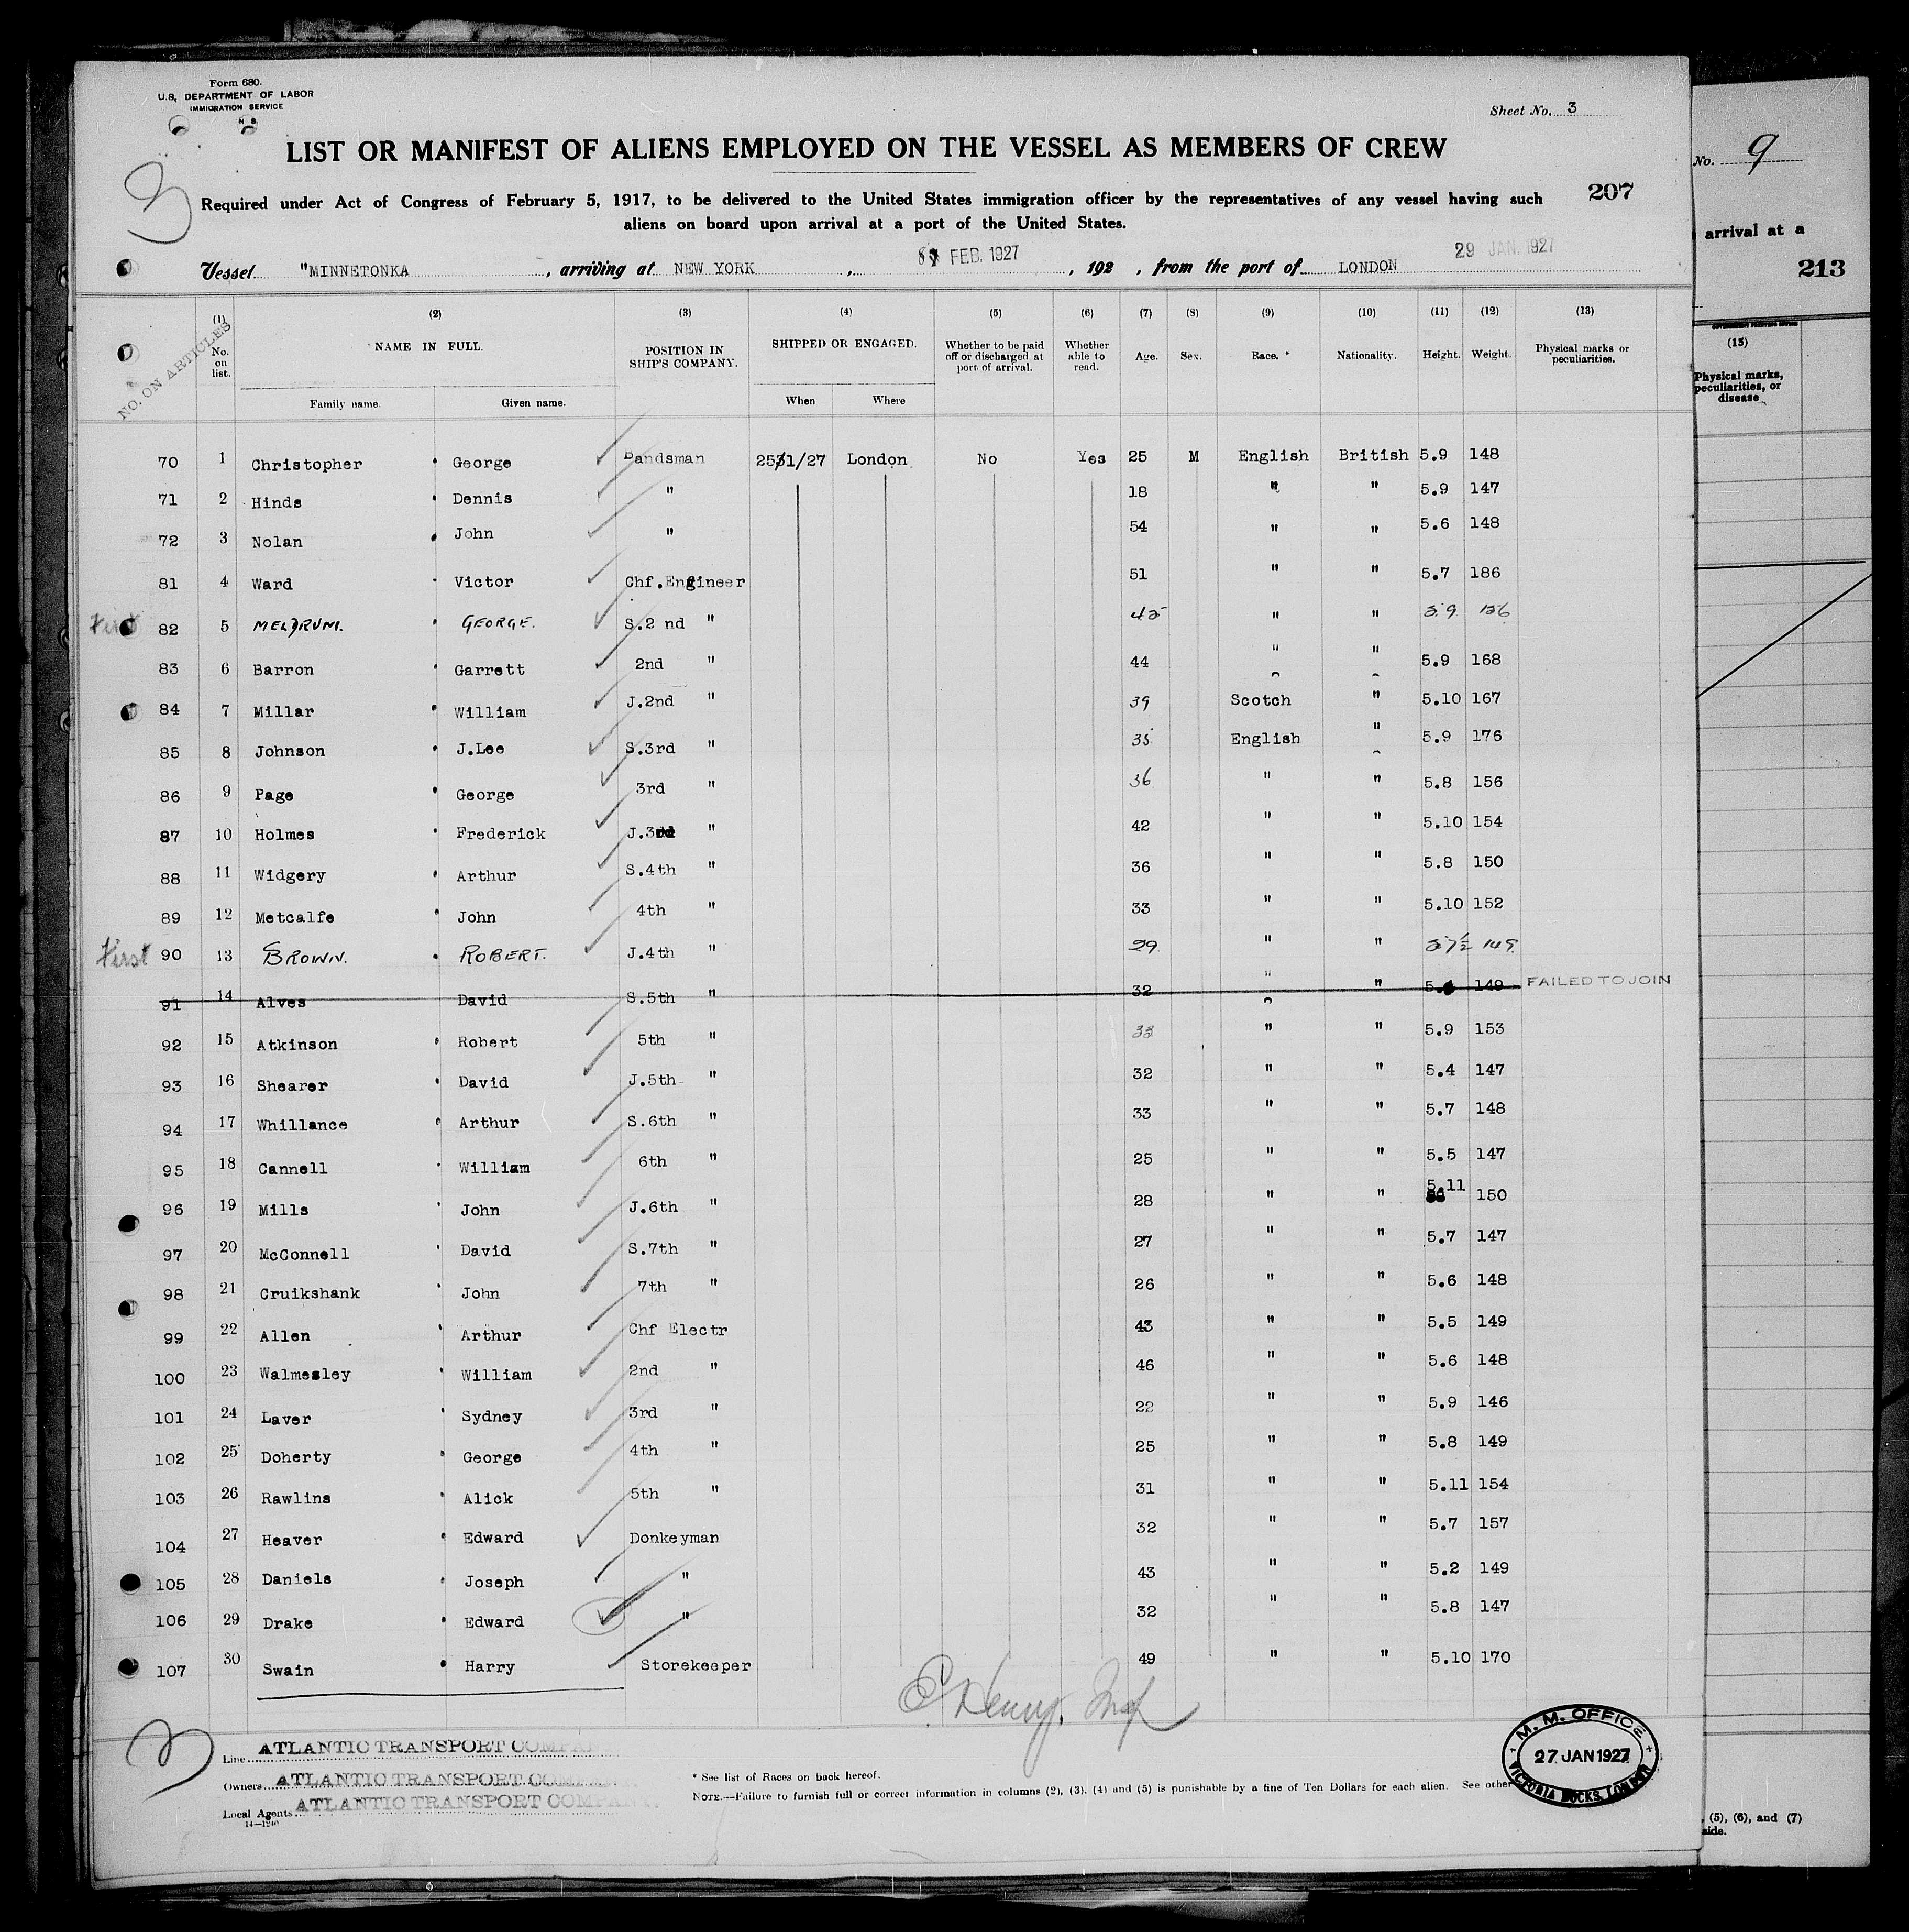 Form 680.
U.S. DEPARTMENT OF LABOR
IMMIGRATION SERVICE
N S
Sheet No. 3
LIST OR MANIFEST OF ALIENS EMPLOYED ON THE VESSEL AS MEMBERS OF CREW
3
Required under Act of Congress of February 5, 1917, to be delivered to the United States immigration officer by the representatives of any vessel having such
aliens on board upon arrival at a port of the United States.
207
Vessel "MINNETONKA , arriving at NEW YORK , FEB. 1927 , 192 , from the port of LONDON 29 JAN. 1927
NO. ON ARTICLES
(1) (2) (3) (4) (5) (6) (7) (8) (9) (10) (11) (12) (13)
No. on list. NAME IN FULL. POSITION IN SHIP'S COMPANY. SHIPPED OR ENGAGED. Whether to be paid off or discharged at port of arrival. Whether able to read. Age. Sex. Race. * Nationality. Height. Weight. Physical marks or peculiarities.
Family name. Given name. When Where
70 1 Christopher George Bandsman 25/1/27 London No Yes 25 M English British 5.9 148
71 2 Hinds Dennis " 18 " " 5.9 147
72 3 Nolan John " 54 " " 5.6 148
81 4 Ward Victor Chf.Engineer 51 " " 5.7 186
First 82 5 MELDRUM. GEORGE. S.2 nd " 45 " " 5.9. 156
83 6 Barron Garrett 2nd " 44 " " 5.9 168
84 7 Millar William J.2nd " 39 Scotch " 5.10 167
85 8 Johnson J.Lee S.3rd " 35 English " 5.9 176
86 9 Page George 3rd " 36 " " 5.8 156
87 10 Holmes Frederick J.3rd " 42 " " 5.10 154
88 11 Widgery Arthur S.4th " 36 " " 5.8 150
89 12 Metcalfe John 4th " 33 " " 5.10 152
First 90 13 BROWN. ROBERT. J.4th " 29. " " 5.7½ 149
91 14 Alves David S.5th " 32 " " 5. 149 FAILED TO JOIN
92 15 Atkinson Robert 5th " 33 " " 5.9 153
93 16 Shearer David J.5th " 32 " " 5.4 147
94 17 Whillance Arthur S.6th " 33 " " 5.7 148
95 18 Cannell William 6th " 25 " " 5.5 147
96 19 Mills John J.6th " 28 " " 5.11 150
97 20 McConnell David S.7th " 27 " " 5.7 147
98 21 Cruikshank John 7th " 26 " " 5.6 148
99 22 Allen Arthur Chf Electr 43 " " 5.5 149
100 23 Walmesley William 2nd " 46 " " 5.6 148
101 24 Laver Sydney 3rd " 22 " " 5.9 146
102 25 Doherty George 4th " 25 " " 5.8 149
103 26 Rawlins Alick 5th " 31 " " 5.11 154
104 27 Heaver Edward Donkeyman 32 " " 5.7 157
105 28 Daniels Joseph " 43 " " 5.2 149
106 29 Drake Edward " 32 " " 5.8 147
107 30 Swain Harry Storekeeper 49 " " 5.10 170
Henry, Insp
3
Line ATLANTIC TRANSPORT COMPANY
Owners ATLANTIC TRANSPORT COMPANY
Local Agents ATLANTIC TRANSPORT COMPANY.
14—1240
* See list of Races on back hereof.
NOTE.—Failure to furnish full or correct information in columns (2), (3), (4) and (5) is punishable by a fine of Ten Dollars for each alien. See other
M. M. OFFICE
27 JAN 1927
VICTORIA DOCKS, LONDON
No. 9
arrival at a
213
GOVERNMENT PRINTING OFFICE
(15)
Physical marks, peculiarities, or disease
, (5), (6), and (7)
side.